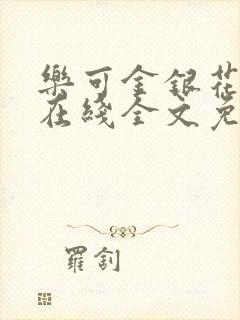 樂可金銀花
在綫全文免
羅釗